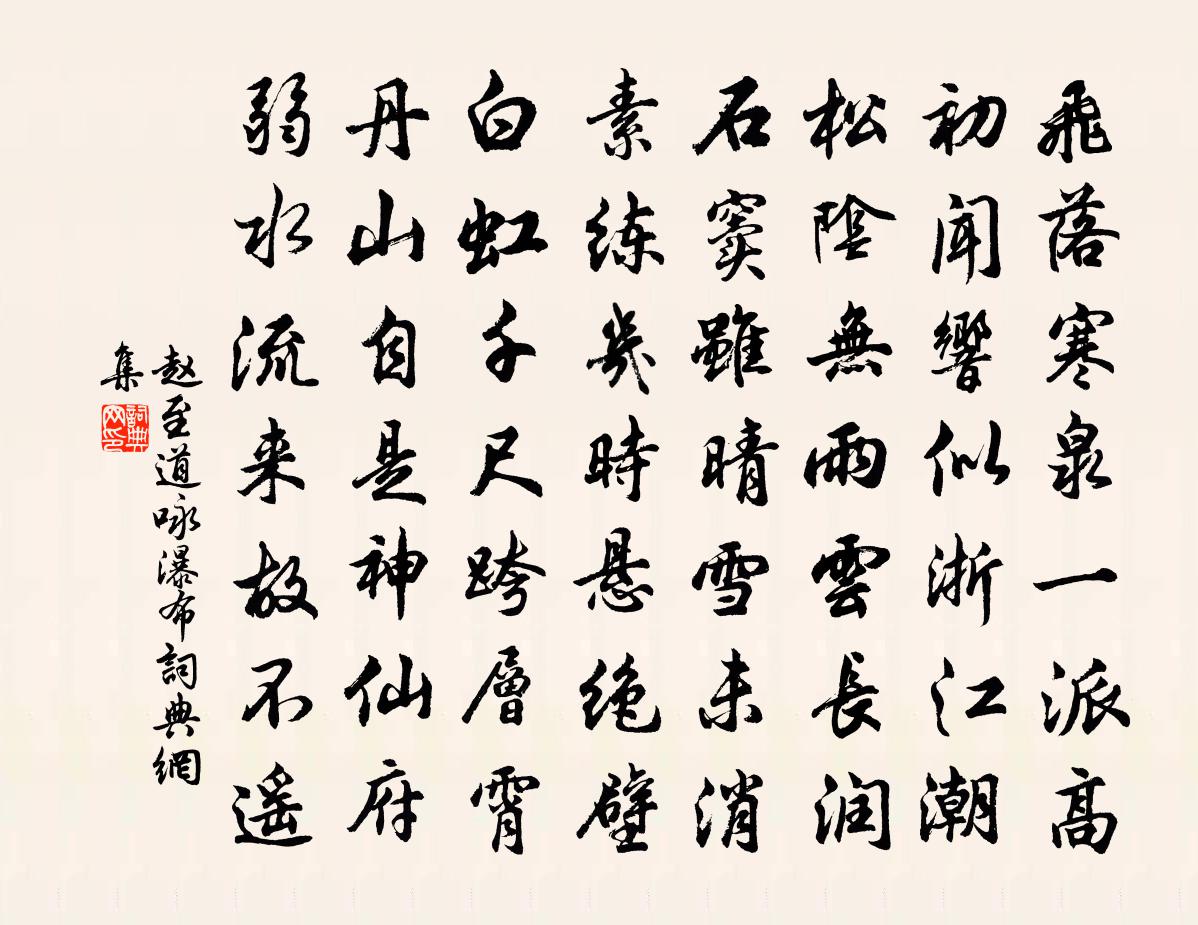 飛落寒泉一派高
初聞響似浙江潮
松陰無雨雲長润
石竇雖晴雪未消
素练幾時悬绝壁
白虹千尺跨層霄
丹山自是神仙府
弱水流来故不遥
赵至道咏瀑布詞典網
集
詞典
网印